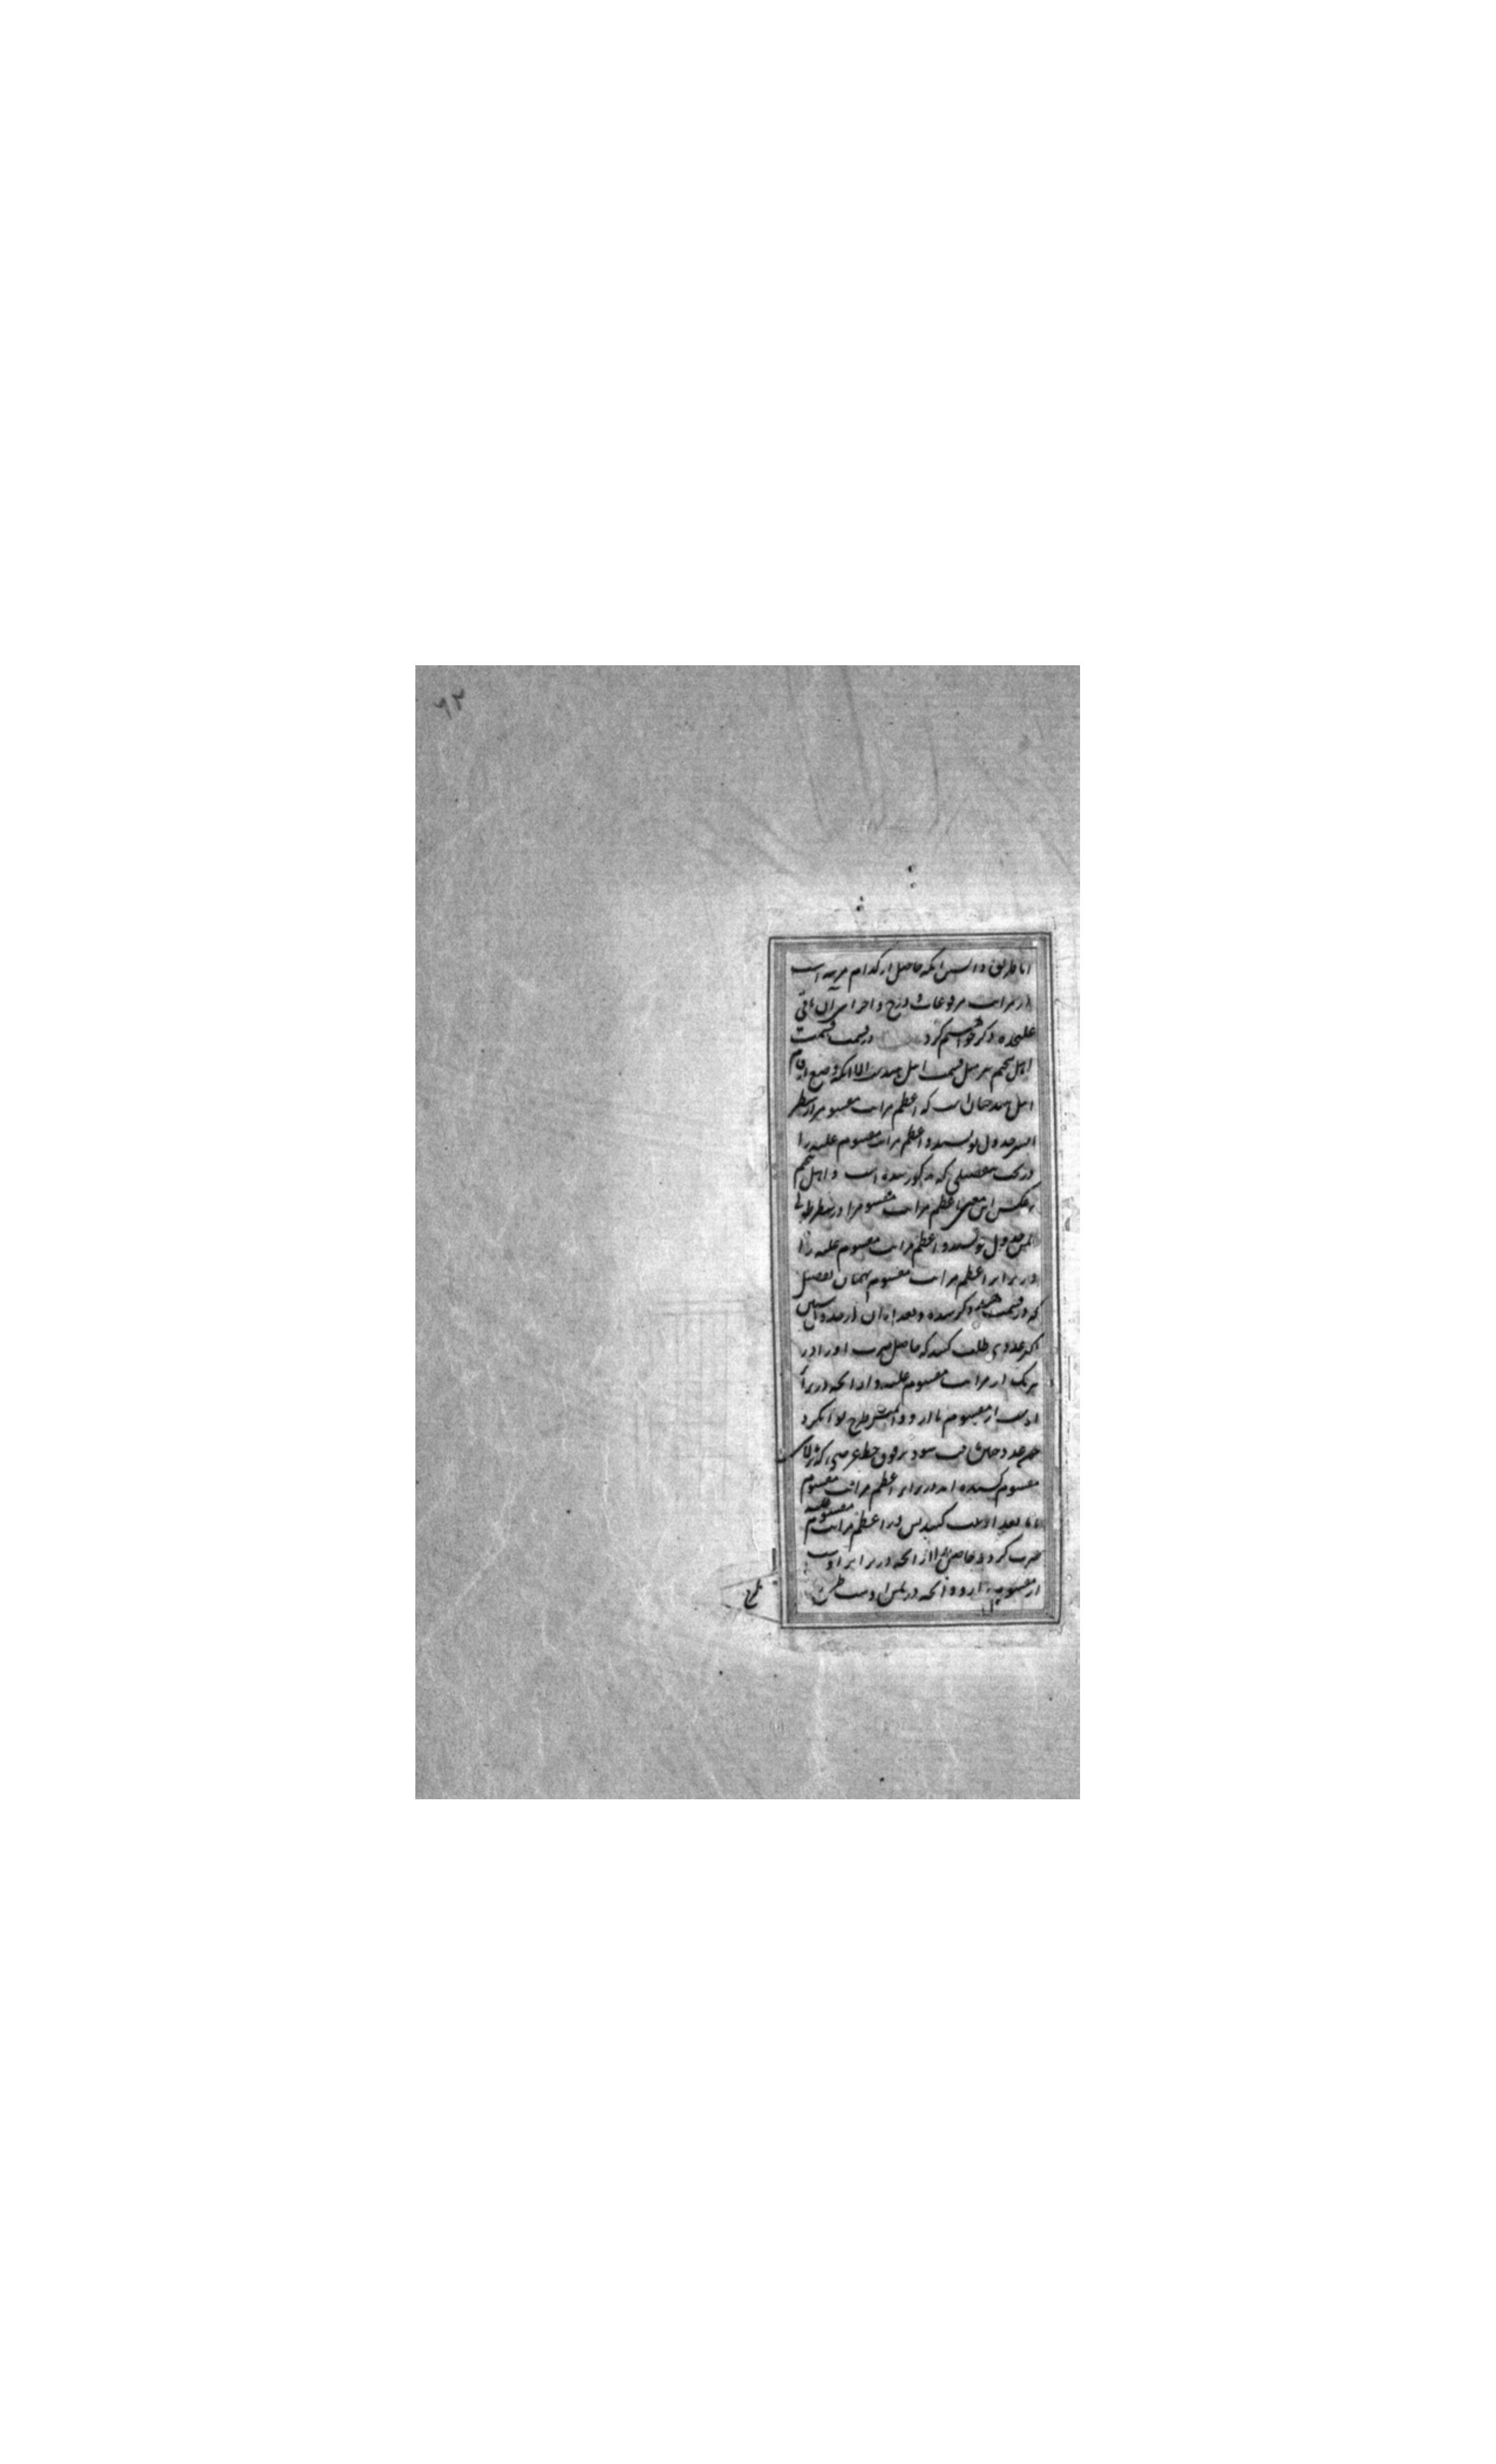 ۶۲
اما طریق دانستن آنکه حاصل از کدام مرتبه است
از مراتب مرفوعات و درج و اجزای آن باقی
علیحده ذکر خواهیم کرد در قسمت قسمت
اهل تنجیم مثل قسمت اهل هند است الا آنکه وضع ارقام
اهل هند چنان است که اعظم مراتب مقسوم را از سطر
ایسر جدول نویسند و اعظم مراتب مقسوم علیه را
در تحت تفصیلی که مذکور شده است و اهل تنجیم
بعکس این یعنی اعظم مراتب مقسوم را در سطر
ایمن جدول نویسند و اعظم مراتب مقسوم علیه را
در برابر اعظم مراتب مقسوم بهمان تفصیل
که در قسمت هند ذکر شده و بعد از آن از جدول ستین
اکثر عددی طلب کنند که حاصل ضرب او را در
هر یک از مراتب مقسوم علیه از آنچه در برابر
اوست از مقسوم یا از و و ایمنش طرح توان کرد
چون عدد چنین یافت شود بر فوق خط عرضی که بر بالای
مقسوم کشیده اند در برابر اعظم مراتب مقسوم
اما بعد او ثبت کنند پس در اعظم مراتب مقسوم علیه
ضرب کرده حاصل را از آنچه در برابر اوست
از مقسوم یا از و و آنچه در یمین اوست
طرح